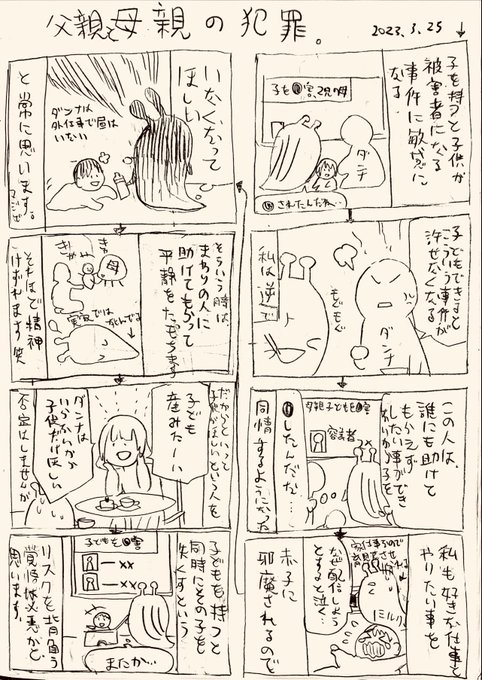 父親と母親の犯罪。
2023.3.25
子を持つと子供が
被害者になる
事件に敏感に
なる
子を●害、29の母
ダンナ
●されたんだね…
子どもできると
こういう事件が
許せなくなる
ダンナ
もぐもぐ
私は逆で
この人は、
誰にも助けて
もらえず
したい事ができ
なかった
子を
母親子どもを●害
容疑者
●したんだな…
同情するようになった
私も好きな仕事と
やりたい事を
なぜ配信しよう
とすると泣く…
(ミルク)
赤子に
邪魔されるので
いなくなって
ほしい
ダンナは
外仕事で昼は
いない
と常に思います。
そういう時は、
まわりの人に
助けてもらって
平静をたもちます
母
実家では
死んでる
それほど精神
けずれます笑
だからといって
子供がほしいという人を
子ども
産みたーい
ダンナは
いらないから
子供だけほしい
否定はしませんが
子どもを持つと
同時にその子を
失くすという
子どもを●害
またか…
リスクを背負う
覚悟は必要かと
思います。